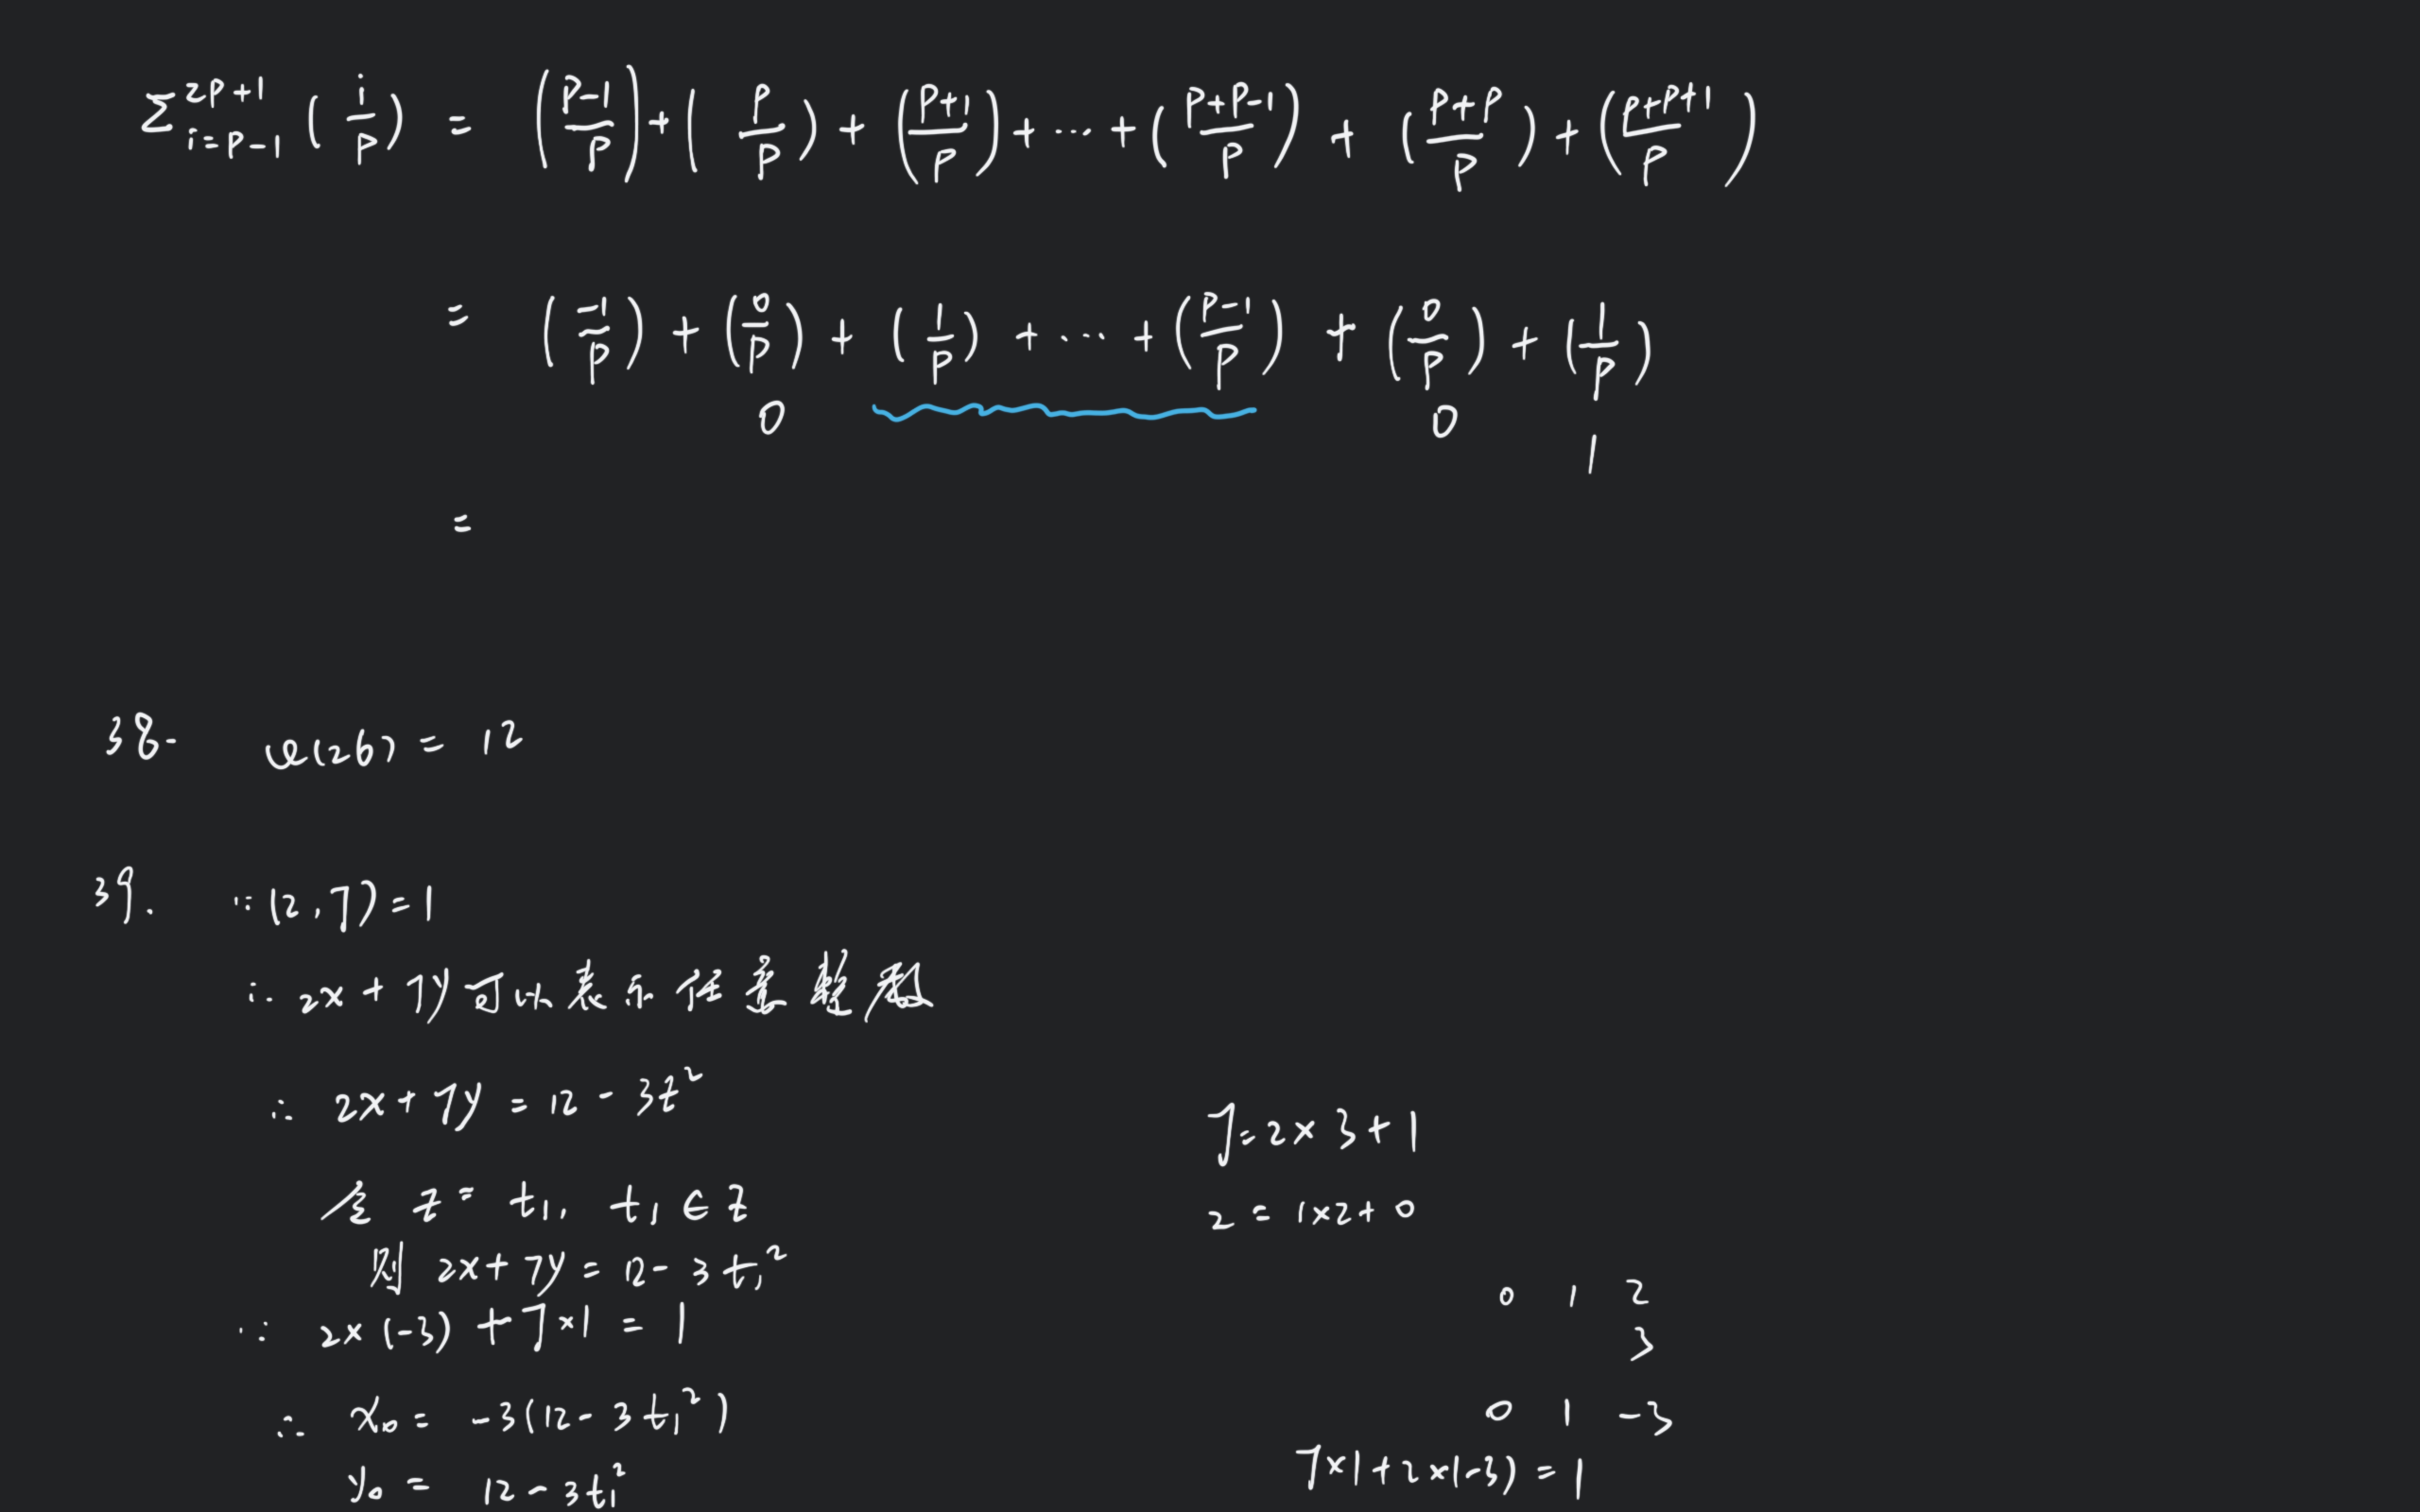 Σ_{i=p-1}^{2p+1} (i/p) = ((p-1)/p) + (p/p) + ((p+1)/p) + ... + ((p+p-1)/p) + ((p+p)/p) + ((p+p+1)/p)
= (-1/p) + (0/p) + (1/p) + ... + ((p-1)/p) + (0/p) + (1/p)
0 0 1
=
38. φ(26) = 12
39. ∵ (2,7) = 1
∴ 2x + 7y 可以表示任意整数
∴ 2x + 7y = 12 - 3z²
令 z = t₁, t₁ ∈ Z
则 2x + 7y = 12 - 3t₁²
∵ 2×(-3) + 7×1 = 1
∴ x₀ = -3(12 - 3t₁²)
y₀ = 12 - 3t₁²
7 = 2×3 + 1
2 = 1×2 + 0
0 1 2
3
0 1 -3
7×1 + 2×(-3) = 1